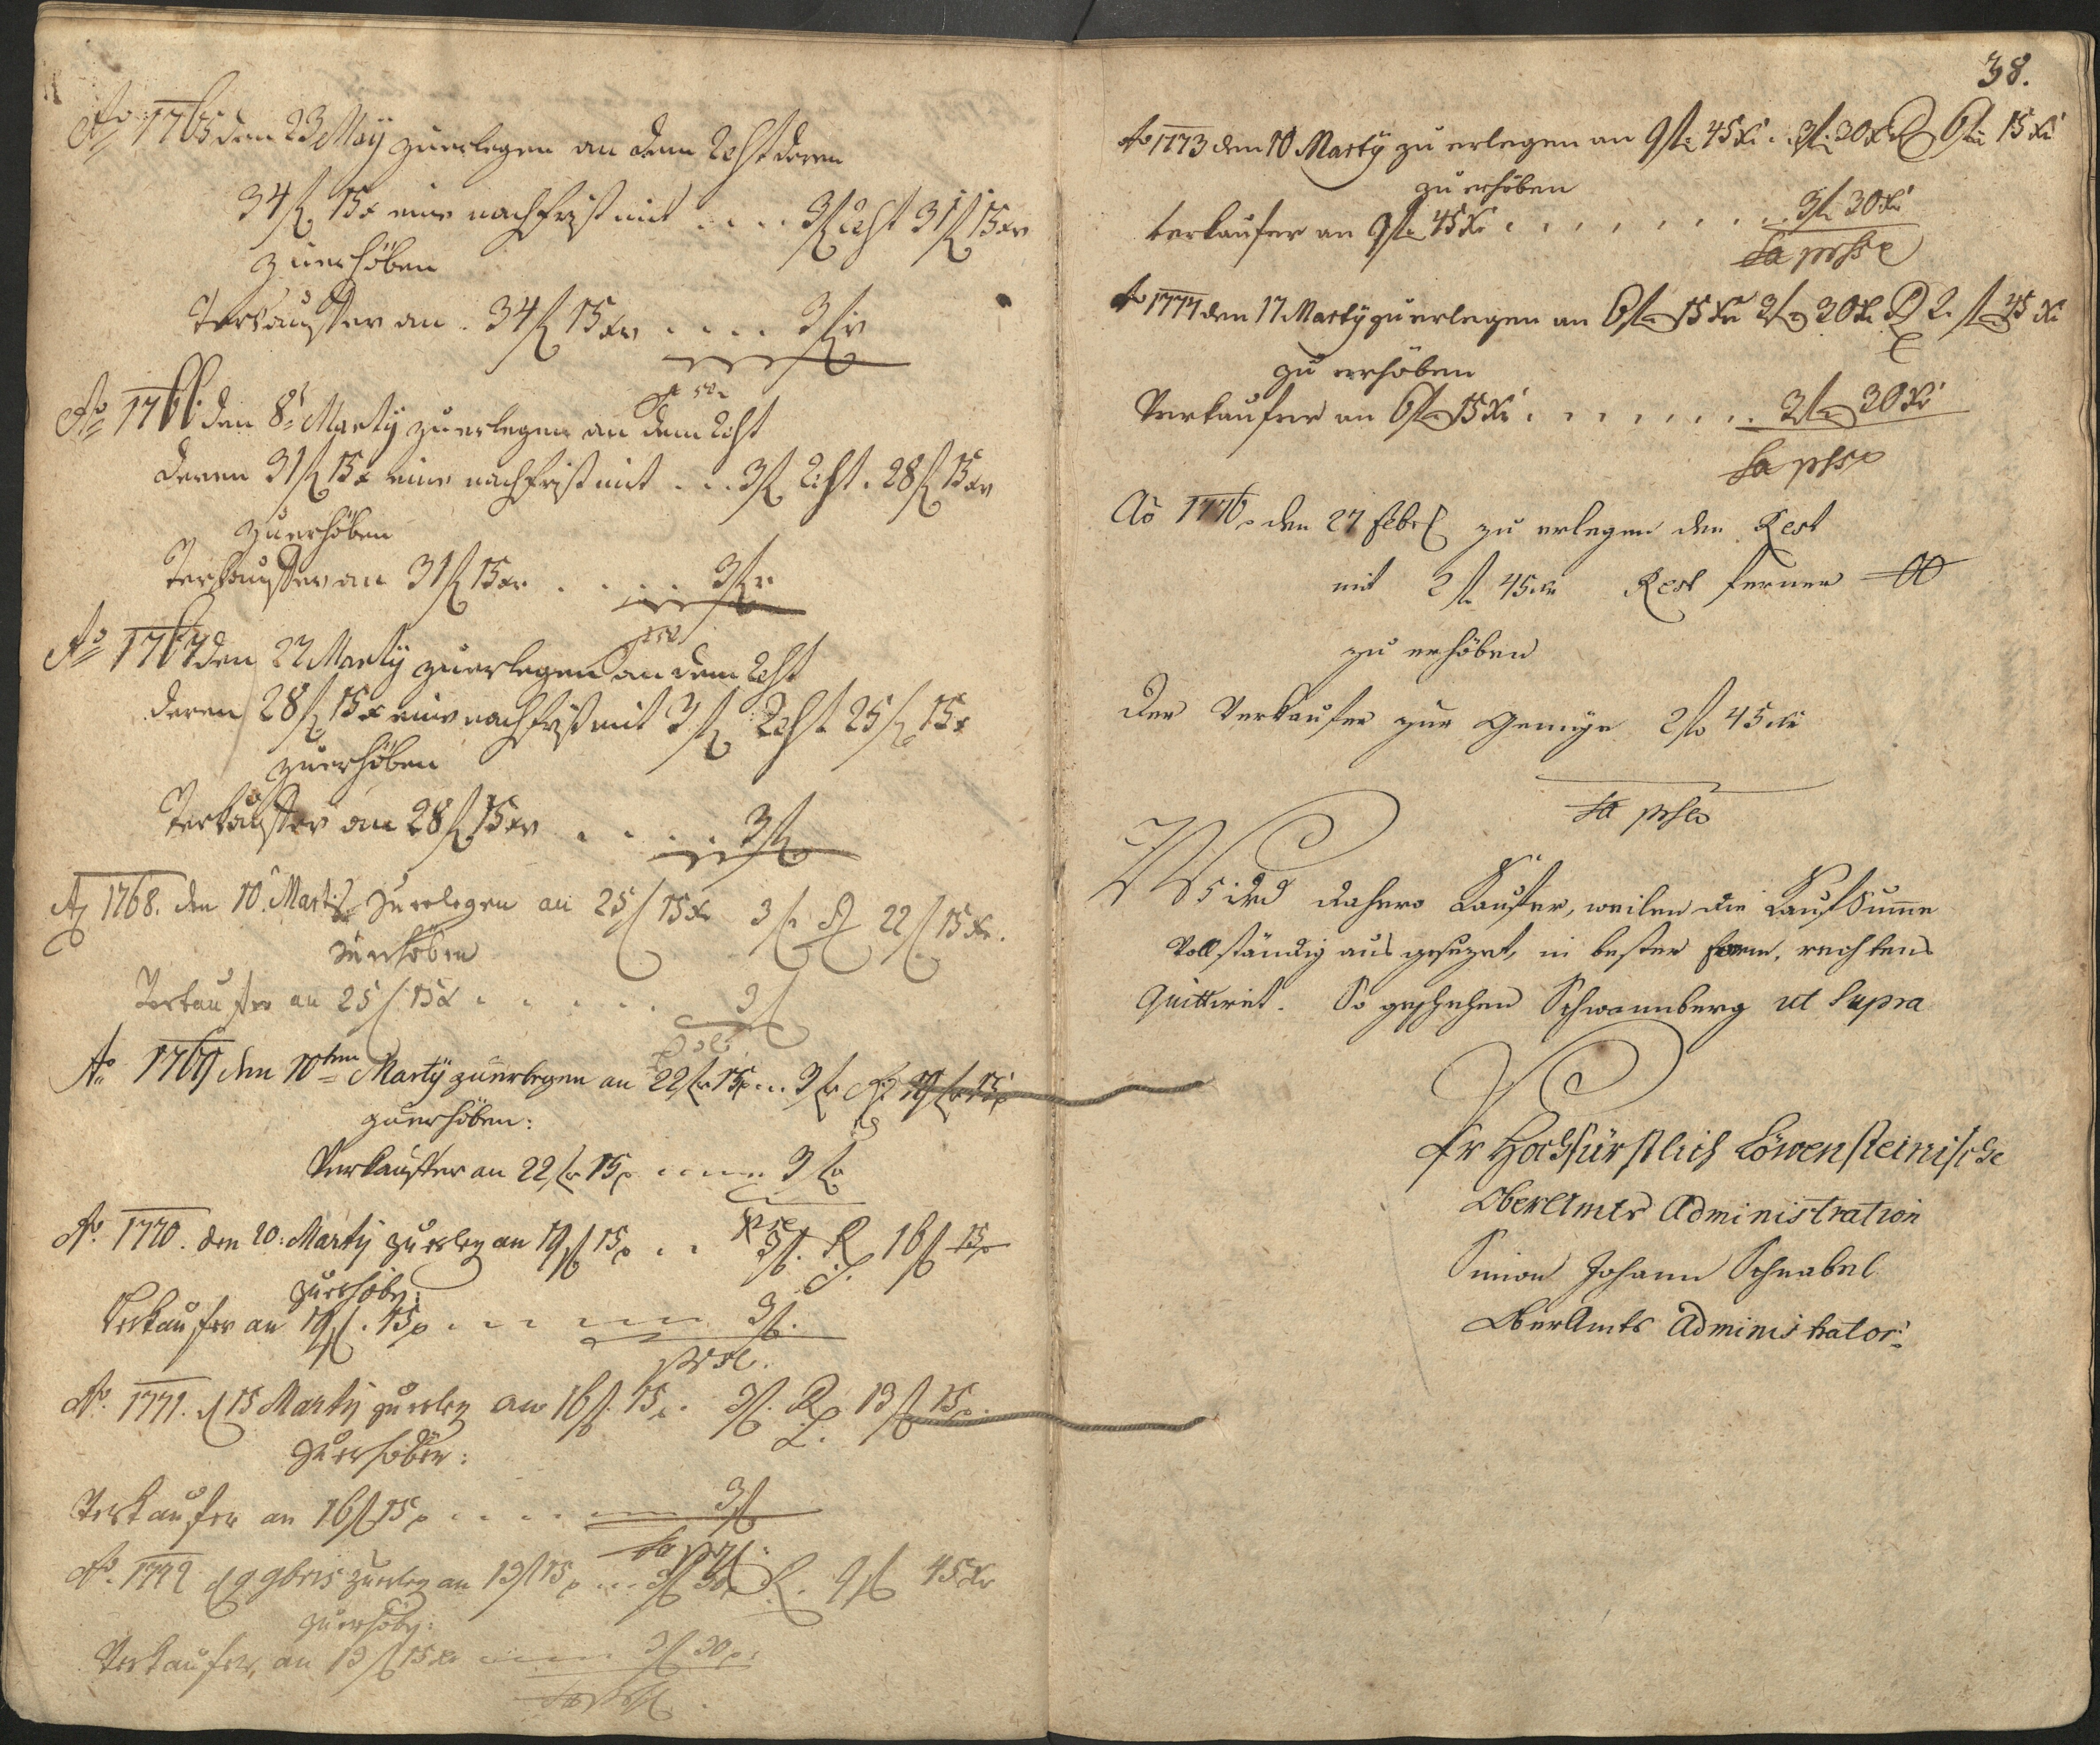 Ao 1765 den 23 Maÿ zu erlegen an dem Rest deren
34 fl 15 x eine nachfrist mit .... 3 fl Rest 31 fl 15 xr
zu erhöben
Verkauffer an . 34 fl 15 xr .... 3 fl
Ao 1766. den 8t Martÿ zu erlegen an dem Rest
deren 31 fl 15 x eine nachfrist mit ... 3 fl Rest . 28 fl 15 xr
zu erhöben
Verkauffer an 31 fl 15 xr ..... 3 fl
Ao 1767 den 22 Martÿ zu erlegen an dem Rest
deren 28 fl 15 x eine nachfrist mit 3 fl Rest 25 fl 15 x
zu erhöben
Verkauffer an 28 fl 15 xr ..... 3 fl
Ao 1768. den 10. Martÿ zu erlegen an 25 fl 15 xr 3 fl R 22 fl 15 xr.
zu erhöben
Verkaufer an 25 fl 15 x ...... 3 fl
Ao 1769 den 10ten Martÿ zu erlegen an 22 fl 15 x ... 3 fl R 19 fl 15 x
zu erhöben:
Verkauffer an 22 fl 15 x ..... 3 fl
Ao. 1770. den 20: Martÿ zu erleg an 19 fl 15 x .. 3 fl. R 16 fl 15 x
zu erhöb:
Verkaufer an 19 fl. 15 x ..... 3 fl.
Ao. 1771. d 15 Martÿ zu erleg an 16 fl. 15 x. 3 fl. R 13 fl 15 x.
zu erhöben:
Verkaufer an 16 fl 15 x ..... 3 fl
Ao. 1772 d 9 9bris zu erleg an 13 fl 15 x ... 3 fl 30 x R. 9 fl 45 xr
zu erhöb:
Verkaufer, an 13 fl 15 xr ..... 3 fl 30 x.
38.
Ao 1773 den 10 Martÿ zu erlegen an 9 fl 45 xr .. 3 fl 30 xr R 6 fl 15 xr
zu erhöben
Verkaufer an 9 fl 45 xr ........ 3 fl 30 xr
Ao 1774 den 17 Martÿ zu erlegen an 6 fl 15 xr 3 fl 30 xr R 2 fl 45 xr
zu erhöben
Verkaufer an 6 fl 15 xr ....... 3 fl 30 xr
Ao 1776. den 27 Febr zu erlegen den Rest
mit 2 fl 45 xr Rest ferner 00
zu erhöben
Der Verkaufer zur Genüge 2 fl 45 xr
Wird dahero Kauffer, weilen die KaufSumme
Vollständig aus gesezet, in bester form, rechtens
Quittiret. So geschehen Schwannberg ut Supra
Hochfürstlich Löwensteinische
OberAmts Administration
Simon Johann Schnabel
OberAmts Administrator